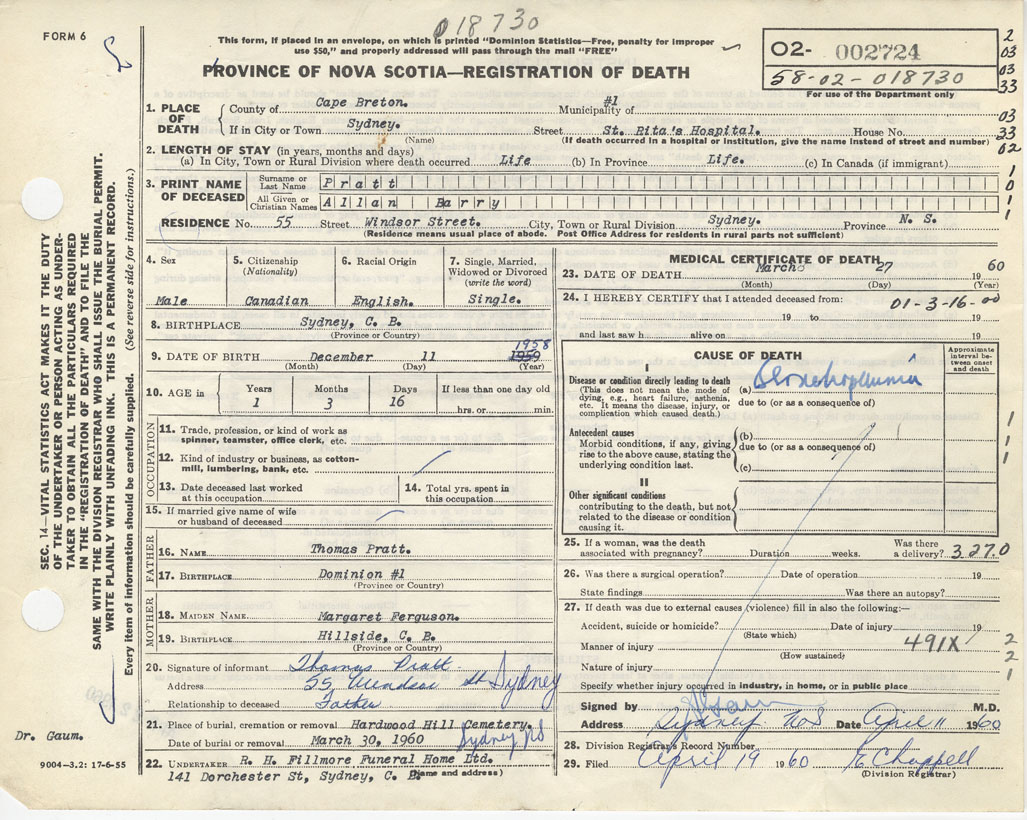 018730
FORM 6
This form, if placed in an envelope, on which is printed "Dominion Statistics—Free, penalty for improper
use $50," and properly addressed will pass through the mail "FREE"
02- 002724
58-02-018730
For use of the Department only
2
03
03
33
PROVINCE OF NOVA SCOTIA—REGISTRATION OF DEATH
1. PLACE OF DEATH
County of Cape Breton. Municipality of #1
If in City or Town Sydney. Street St. Rita's Hospital. House No.
(Name) (If death occurred in a hospital or institution, give the name instead of street and number)
03
33
02
2. LENGTH OF STAY (in years, months and days)
(a) In City, Town or Rural Division where death occurred Life (b) In Province Life. (c) In Canada (if immigrant)
3. PRINT NAME OF DECEASED
Surname or Last Name Pratt
All Given or Christian Names Allan Barry
1
0
1
1
RESIDENCE No. 55 Street Windsor Street. City, Town or Rural Division Sydney. Province N. S.
(Residence means usual place of abode. Post Office Address for residents in rural parts not sufficient)
4. Sex
Male
5. Citizenship
(Nationality)
Canadian
6. Racial Origin
English.
7. Single, Married,
Widowed or Divorced
(write the word)
Single.
8. BIRTHPLACE Sydney, C. B.
(Province or Country)
9. DATE OF BIRTH December 11 1959 1958
(Month) (Day) (Year)
10. AGE in
Years Months Days If less than one day old
1 3 16 hrs. or min.
OCCUPATION
11. Trade, profession, or kind of work as
spinner, teamster, office clerk, etc.
12. Kind of industry or business, as cotton-
mill, lumbering, bank, etc.
13. Date deceased last worked
at this occupation
14. Total yrs. spent in
this occupation
15. If married give name of wife
or husband of deceased
FATHER
16. NAME Thomas Pratt.
17. BIRTHPLACE Dominion #1
(Province or Country)
MOTHER
18. MAIDEN NAME Margaret Ferguson.
19. BIRTHPLACE Hillside, C. B.
(Province or Country)
20. Signature of informant Thomas Pratt
Address 55 Windsor St Sydney
Relationship to deceased Father
21. Place of burial, cremation or removal Hardwood Hill Cemetery.
Date of burial or removal March 30, 1960 Sydney NS
22. UNDERTAKER R. H. Fillmore Funeral Home Ltd.
141 Dorchester St, Sydney, C. B.
(Name and address)
MEDICAL CERTIFICATE OF DEATH
23. DATE OF DEATH March 27 1960
(Month) (Day) (Year)
24. I HEREBY CERTIFY that I attended deceased from:
01-3-16-00
19 to 19
and last saw h alive on 19
CAUSE OF DEATH
Approximate
interval be-
tween onset
and death
I
Disease or condition directly leading to death
(This does not mean the mode of
dying, e.g., heart failure, asthenia,
etc. It means the disease, injury, or
complication which caused death.)
(a) Bronchopneumonia
due to (or as a consequence of)
Antecedent causes
Morbid conditions, if any, giving
rise to the above cause, stating the
underlying condition last.
(b)
due to (or as a consequence of)
(c)
1
1
1
II
Other significant conditions
contributing to the death, but not
related to the disease or condition
causing it.
25. If a woman, was the death
associated with pregnancy? Duration weeks. Was there
a delivery? 3270
26. Was there a surgical operation? Date of operation 19
State findings Was there an autopsy?
27. If death was due to external causes (violence) fill in also the following:—
Accident, suicide or homicide? Date of injury 19
(State which)
Manner of injury 491X
(How sustained)
Nature of injury
Specify whether injury occurred in industry, in home, or in public place
2
2
1
Signed by M.D.
Address Sydney NS Date April 11 1960
28. Division Registrar's Record Number
29. Filed April 19 1960 E Chappell
(Division Registrar)
SEC. 14—VITAL STATISTICS ACT MAKES IT THE DUTY
OF THE UNDERTAKER OR PERSON ACTING AS UNDER-
TAKER TO OBTAIN ALL THE PARTICULARS REQUIRED
IN THE "REGISTRATION OF DEATH" AND FILE THE
SAME WITH THE DIVISION REGISTRAR WHO SHALL ISSUE THE BURIAL PERMIT.
WRITE PLAINLY WITH UNFADING INK. THIS IS A PERMANENT RECORD.
Every item of information should be carefully supplied. (See reverse side for instructions.)
Dr. Gaum.
9004-3.2: 17-6-55